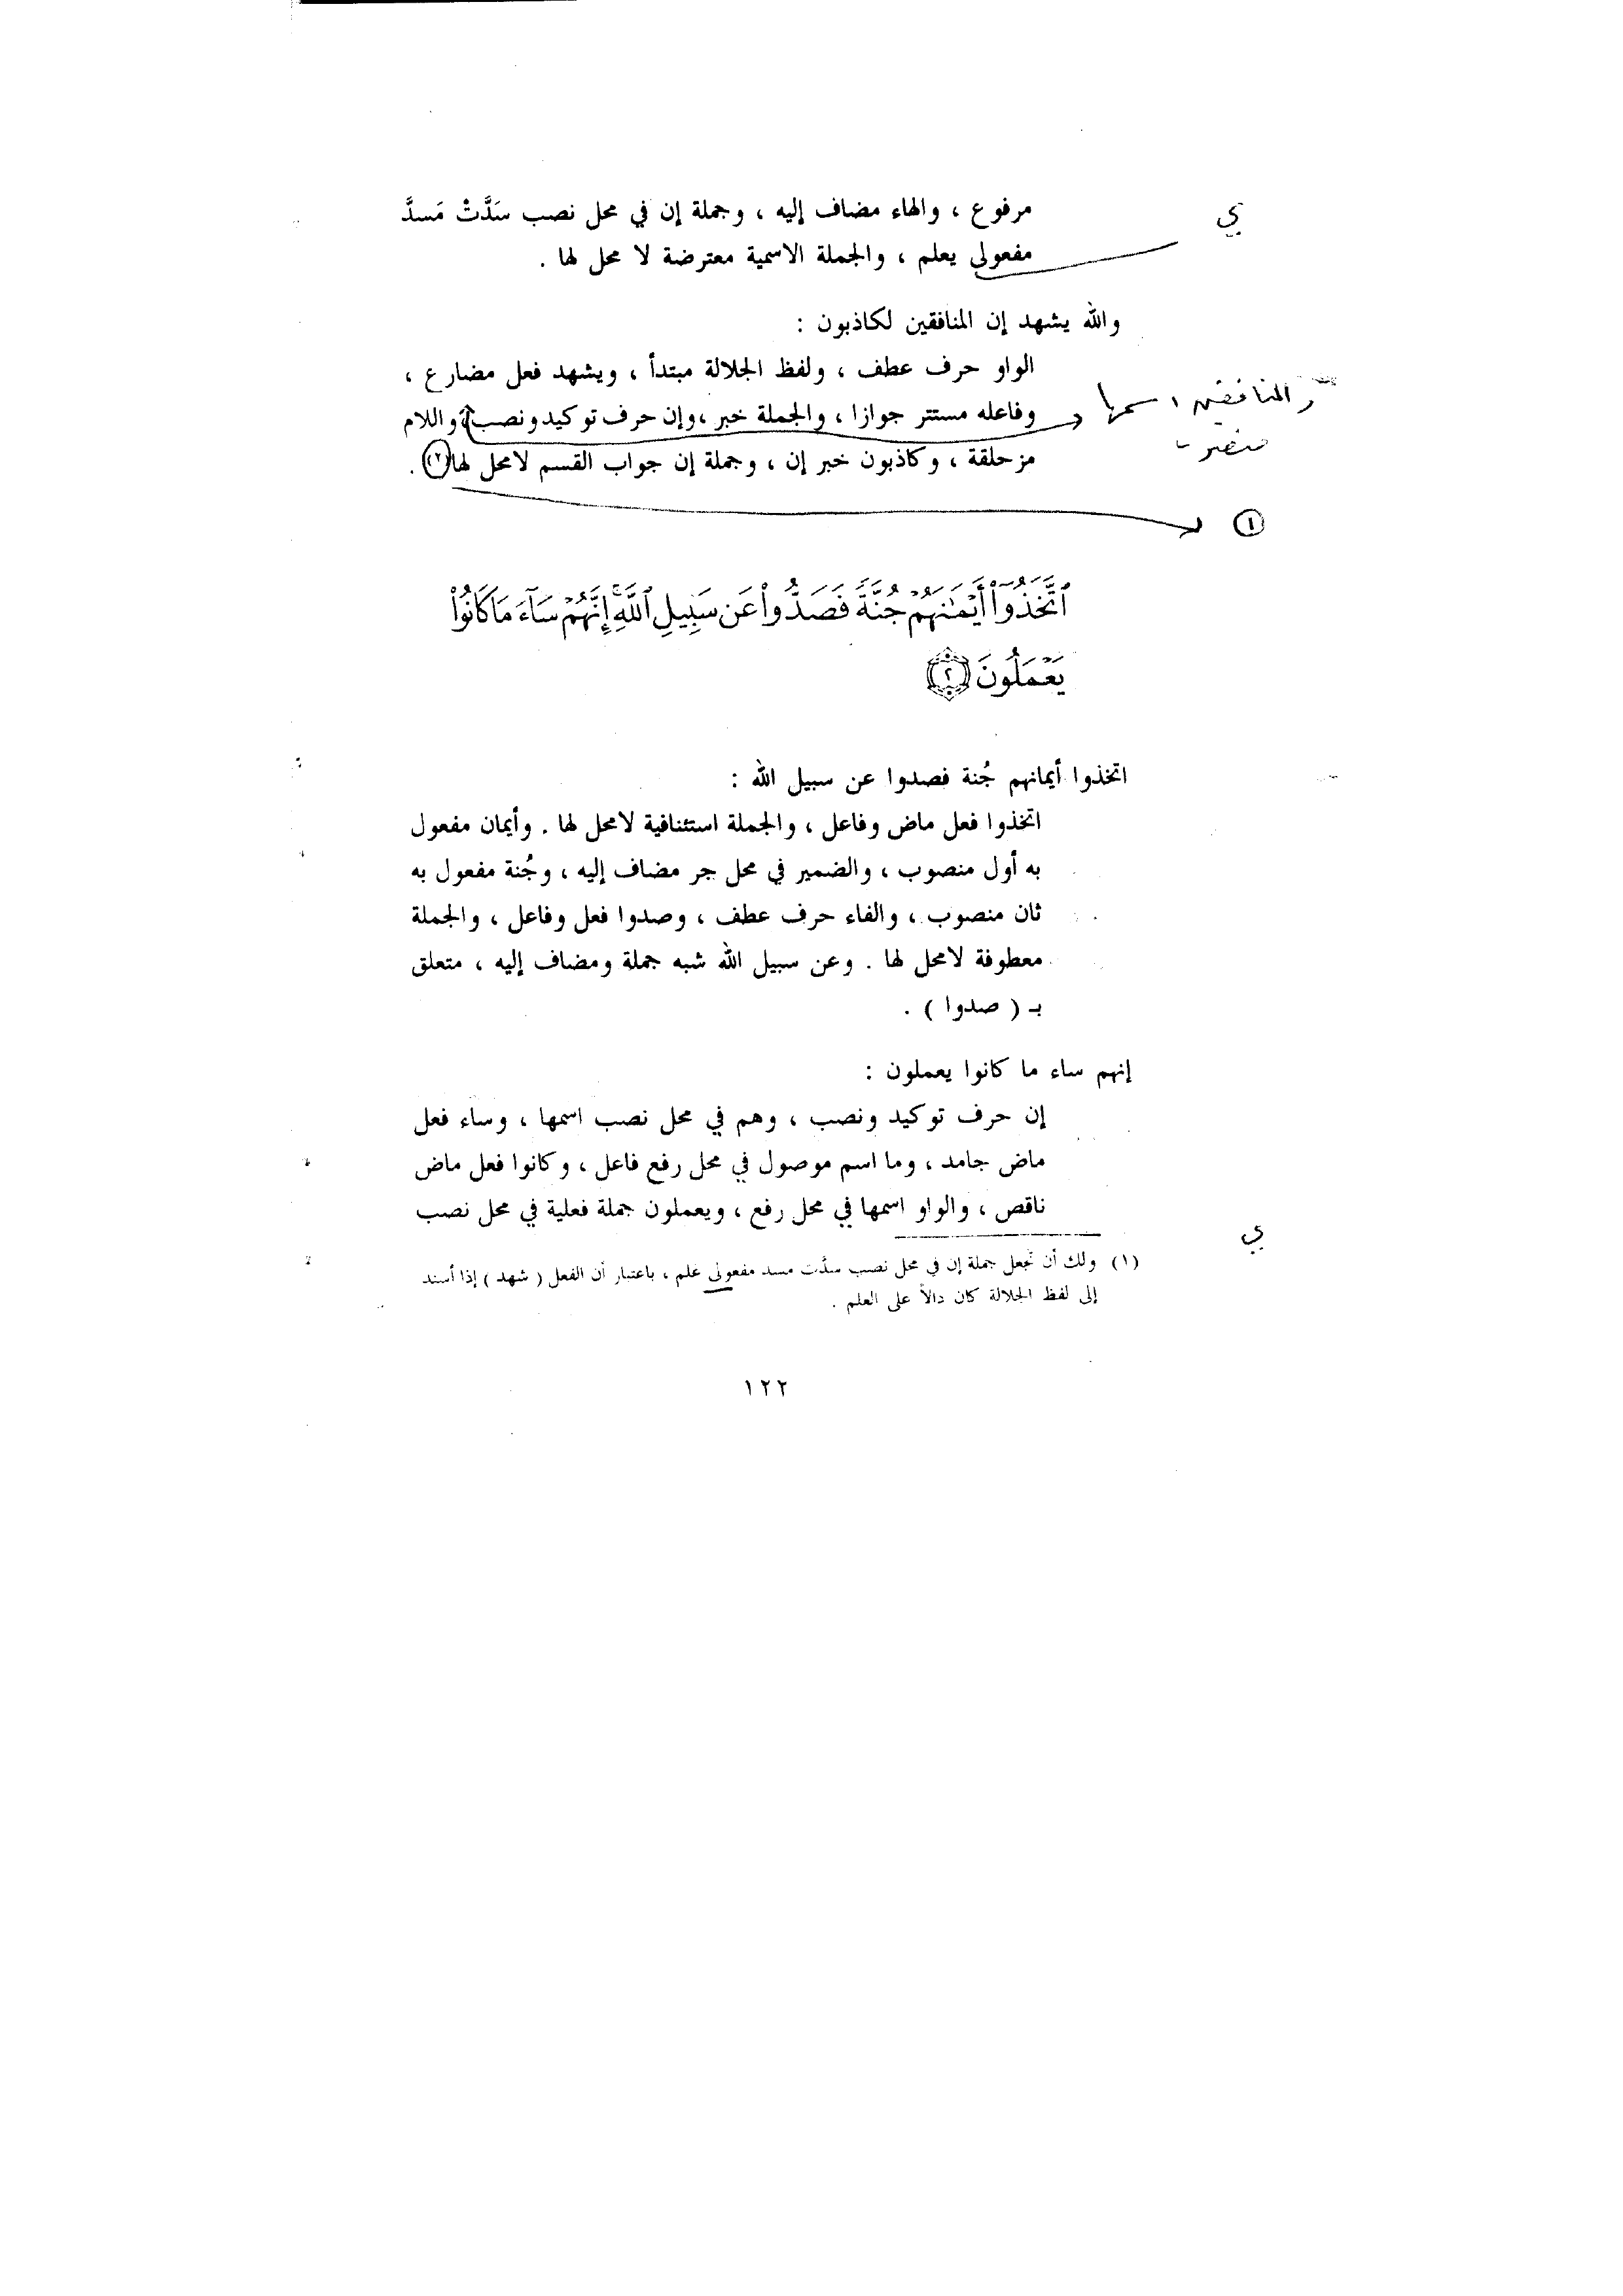 مرفوع ، والهاء مضاف إليه ، وجملة إن في محل نصب سَدَّتْ مَسدَّ
ي
مفعولى يعلم ، والجملة الاسمية معترضة لا محل لها .
والله يشهد إن المنافقين لكاذبون :
الواو حرف عطف ، ولفظ الجلالة مبتدأ ، ويشهد فعل مضارع ،
والمنافقين اسمها
وفاعله مستتر جوازا ، والجملة خبر ، وإن حرف توكيد ونصب ، واللام
منصوب
مزحلقة ، وكاذبون خبر إن ، وجملة إن جواب القسم لامحل لها(٢) .
١
ٱتَّخَذُوٓا۟ أَيْمَٰنَهُمْ جُنَّةً فَصَدُّوا۟ عَن سَبِيلِ ٱللَّهِ ۚ إِنَّهُمْ سَآءَ مَا كَانُوا۟
يَعْمَلُونَ ٢
اتخذوا أيمانهم جُنة فصدوا عن سبيل الله :
اتخذوا فعل ماض وفاعل ، والجملة استئنافية لامحل لها . وأيمان مفعول
به أول منصوب ، والضمير في محل جر مضاف إليه ، وجُنة مفعول به
ثان منصوب ، والفاء حرف عطف ، وصدوا فعل وفاعل ، والجملة
معطوفة لامحل لها . وعن سبيل الله شبه جملة ومضاف إليه ، متعلق
بـ ( صدوا ) .
إنهم ساء ما كانوا يعملون :
إن حرف توكيد ونصب ، وهم في محل نصب اسمها ، وساء فعل
ماض جامد ، وما اسم موصول في محل رفع فاعل ، وكانوا فعل ماض
ناقص ، والواو اسمها في محل رفع ، ويعملون جملة فعلية في محل نصب
ي
(١) ولك أن تجعل جملة إن في محل نصب سدَّت مسد مفعولى علم ، باعتبار أن الفعل ( شهد ) إذا أسند
إلى لفظ الجلالة كان دالاً على العلم .
١٢٢